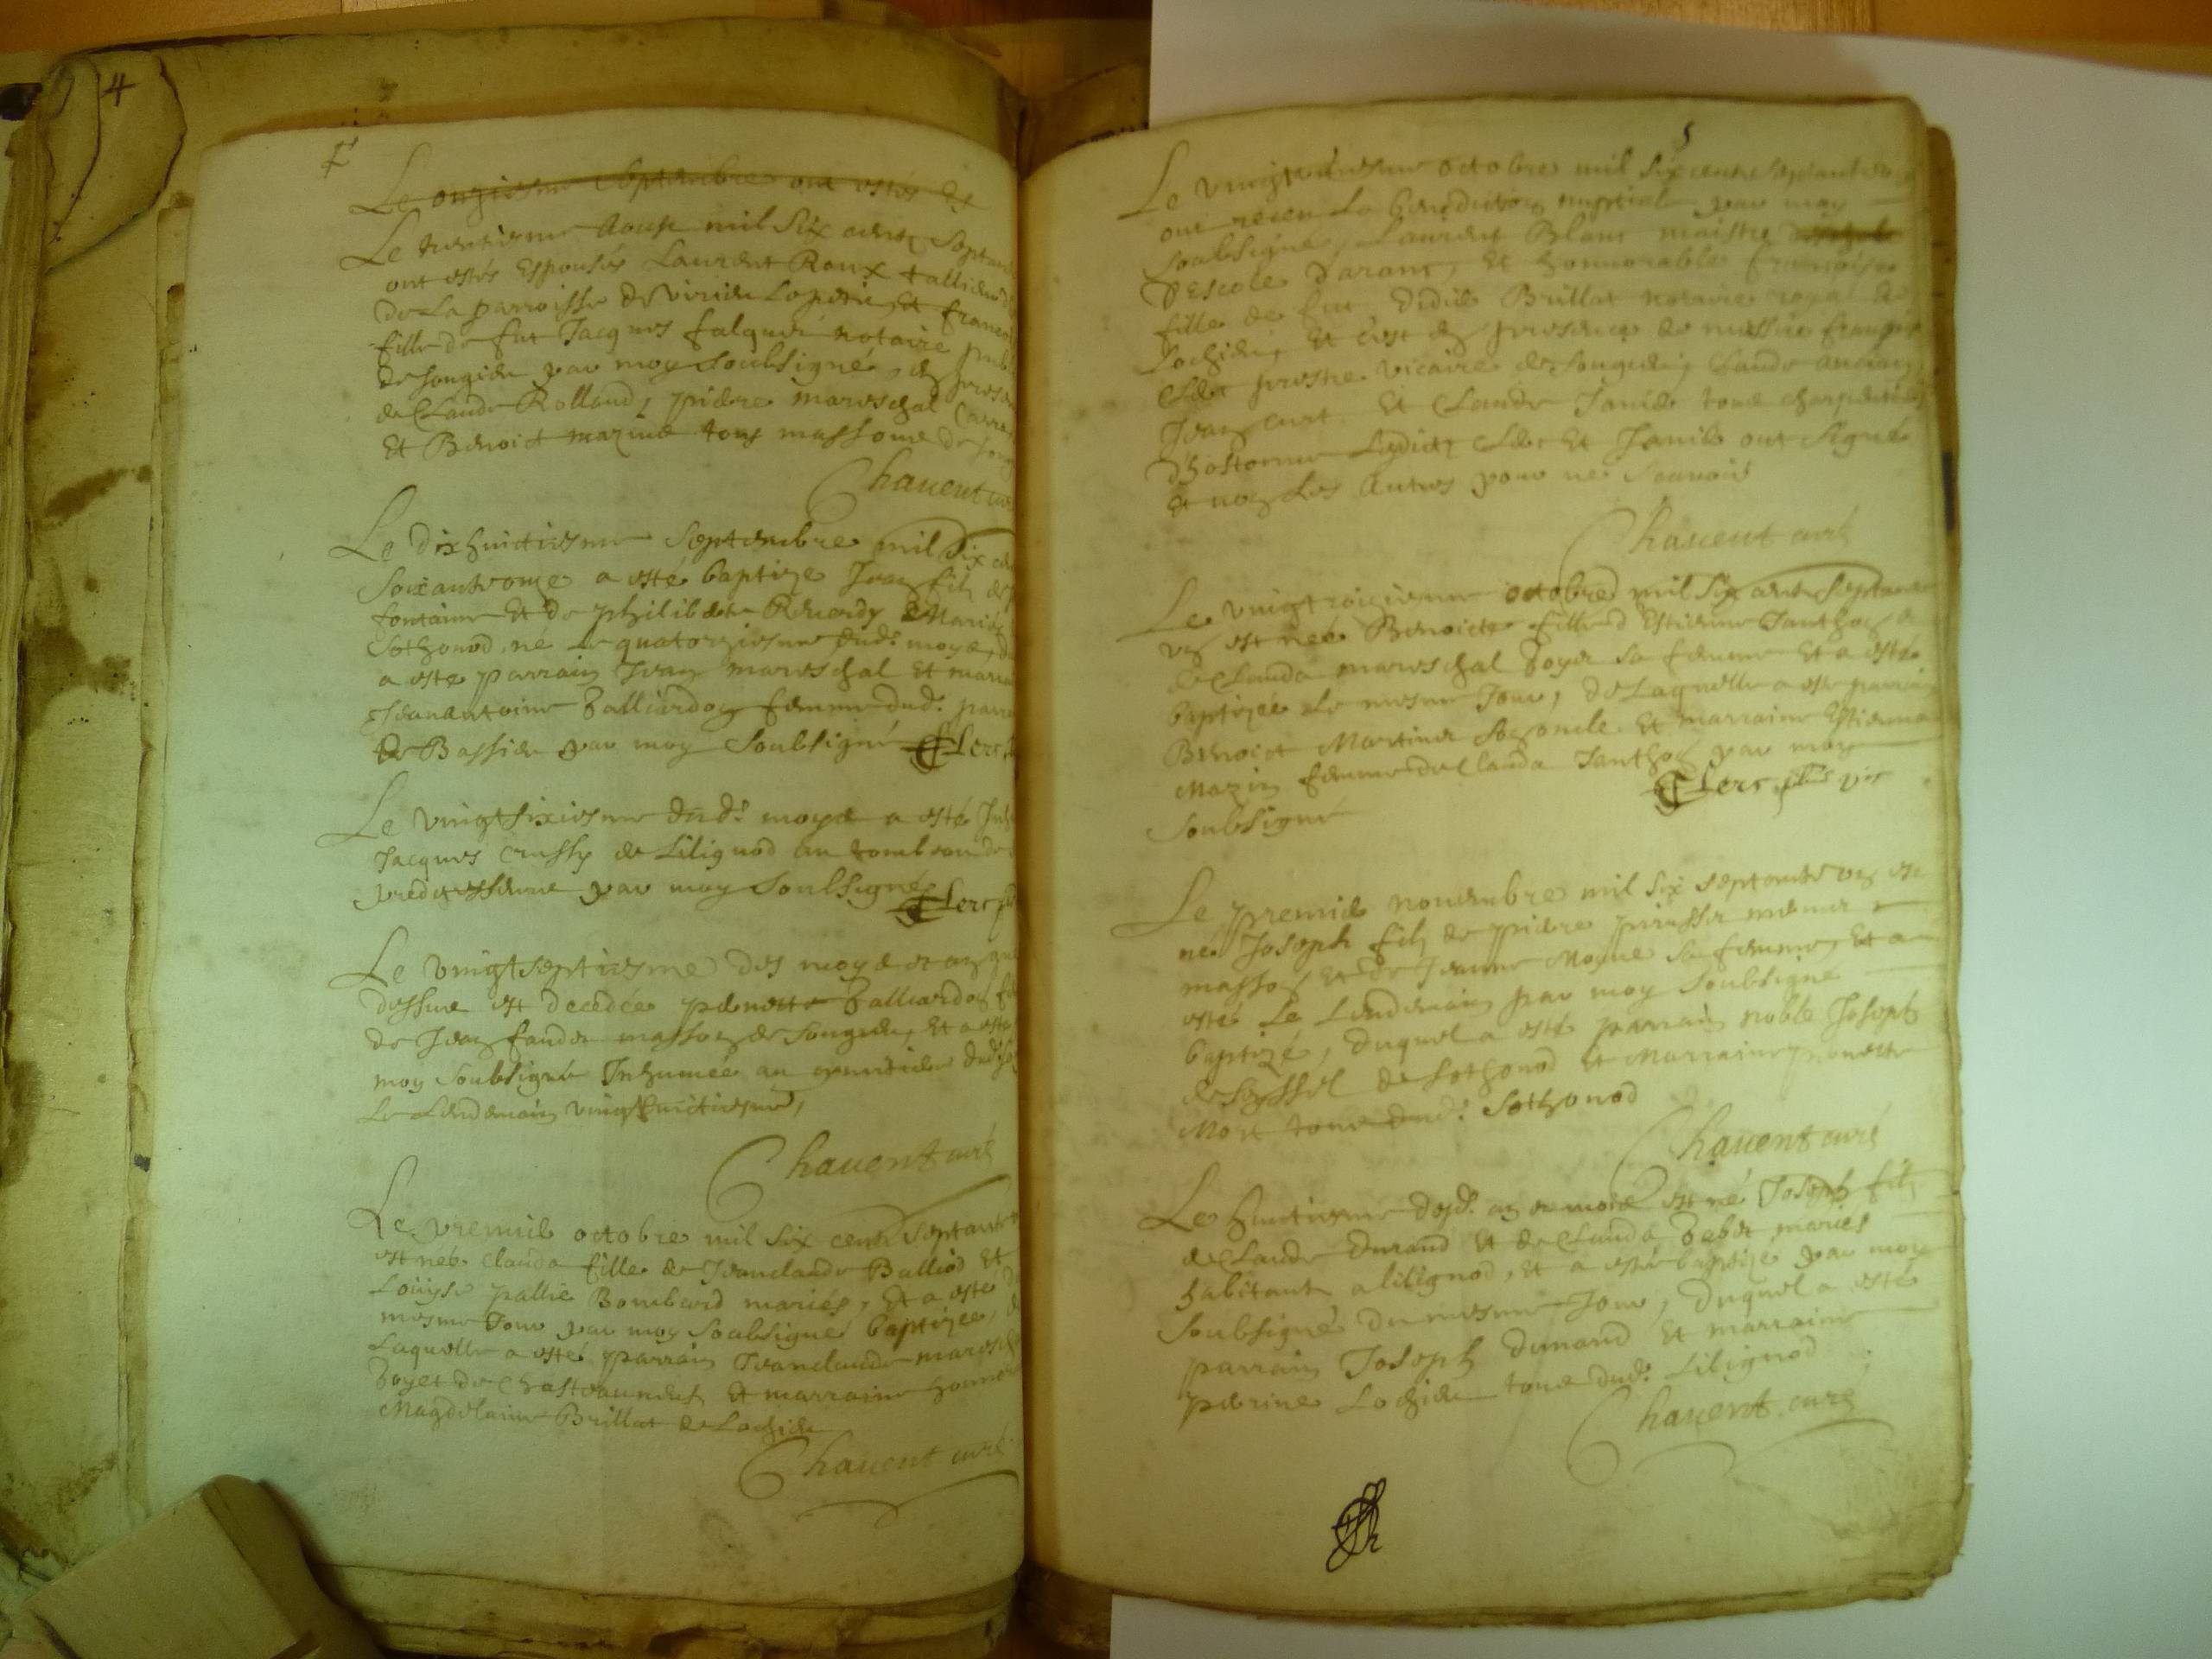 4
Le onziesme septembre ont estés Es
Le treiziesme Aoust mil six cents septan
ont estés Espousés Laurent Roux
de La parroisse de Virieu Lopetit, et franco
fille de fut Jacques falquet notaire publ
de Songieu par moy soubsigné, en presen
de Claude Rolland, pierre mareschal
Et Benoict mazuid tous massons de Song
Chauent curé
Le dixhuictiesme septembre mil six cen
soixantvonze a esté baptize Jean filz de
fontaine Et de philiberte Reuerdy Mariés
Sothonod, né le quatorziesme dud. moys, du
a esté parrain Jean mareschal Et marra
Jeanantoine Balliardon femme dud. parra
de Bassieu par moy soubsigné Clerc
Le vingtsixiesme dud. moys a esté Inh
Jacques Crussy de Lilignod au tombeau de
predecesseurs par moy soubsigné Clerc
Le vingtseptiesme des moys et an que
dessus est decedée pernette Balliardon fe
de Jean fander masson de Songieu, Et a esté
moy soubsigné Inhumée au cymitiere dud. So
Le Lendemain vingthuictiesme,
Chauent curé
Le premier octobre mil six cents septante
est née Clauda fille de Jeanclaude Balliod Et
Louyse pallie Bombard mariés, Et a esté
mesme Jour par moy soubsigné baptizee, de
Laquelle a esté parrain Jeanclaude maresch
boyer de Chasteauneuf, Et marraine honnor
Magdelaine Brillat de Lochieu
Chauent curé
5
Le octobre mil six cents septante
ont receu La benediction nuptiale par moy
soubsigné, Laurent Blanc maistre
Descole Daranc, Et honnorable francoise
fille de fut Didier Brillat notaire royal de
Lochieu, Et c'est en presence de messire françois
Clerc prestre vicaire de Songieu, Claude
Jean curt Et Claude Janier tous charpentiers
Lesdictz Clerc Et Janier ont signé
Et non Les Autres pour ne scauoir
Chauent curé
Le vingtroiziesme octobre mil six cents septante
vn est née Benoicte fille d'Estienne Janthon Et
de Clauda mareschal boyer sa femme Et a esté
baptizée Le mesme Jour, de Laquelle a esté parrain
Benoict Martiner son oncle Et marraine Estienna
Mazin femme de Claude Janthon par moy
soubsigné
Clerc vic
Le premier nouembre mil six septante vn est
né Joseph filz de pierre
masson Et de Jeanne Moyne sa femme, Et a
esté Le Lendemain par moy soubsigné
baptizé, duquel a esté parrain noble Joseph
de Seyssel de Sothonod Et Marraine pernette
Mort tous dud. Sothonod
Chauent curé
Le huictiesme desd. an et mois est né Joseph filz
de Claude Durand Et de Clauda Bebet mariés
habitants a Lilignod, Et a esté baptize par moy
soubsigné du mesme Jour, duquel a esté
parrain Joseph Dunand Et marraine
perrine Lochieu tous dud. Lilignod
Chauent curé